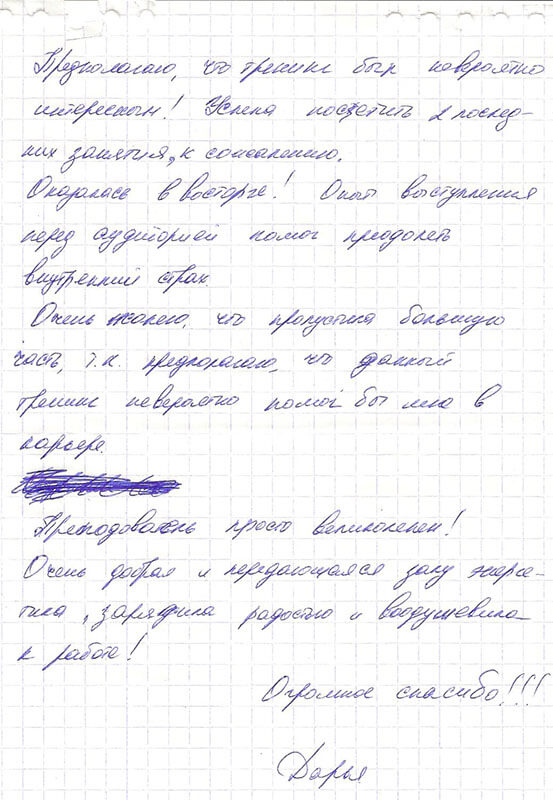 Предполагаю, что тренинг был невероятно
интересным! Успела посетить 2 послед-
них занятия, к сожалению.
Оказалась в восторге! Опыт выступления
перед аудиторией помог преодолеть
внутренний страх.
Очень жалею, что пропустила большую
часть, т.к. предполагаю, что данный
тренинг невероятно помог бы мне в
карьере.
Преподаватель просто великолепен!
Очень добрая и передающаяся залу энерге-
тика, зарядила радостью и воодушевила
к работе!
Огромное спасибо!!!
Дарья